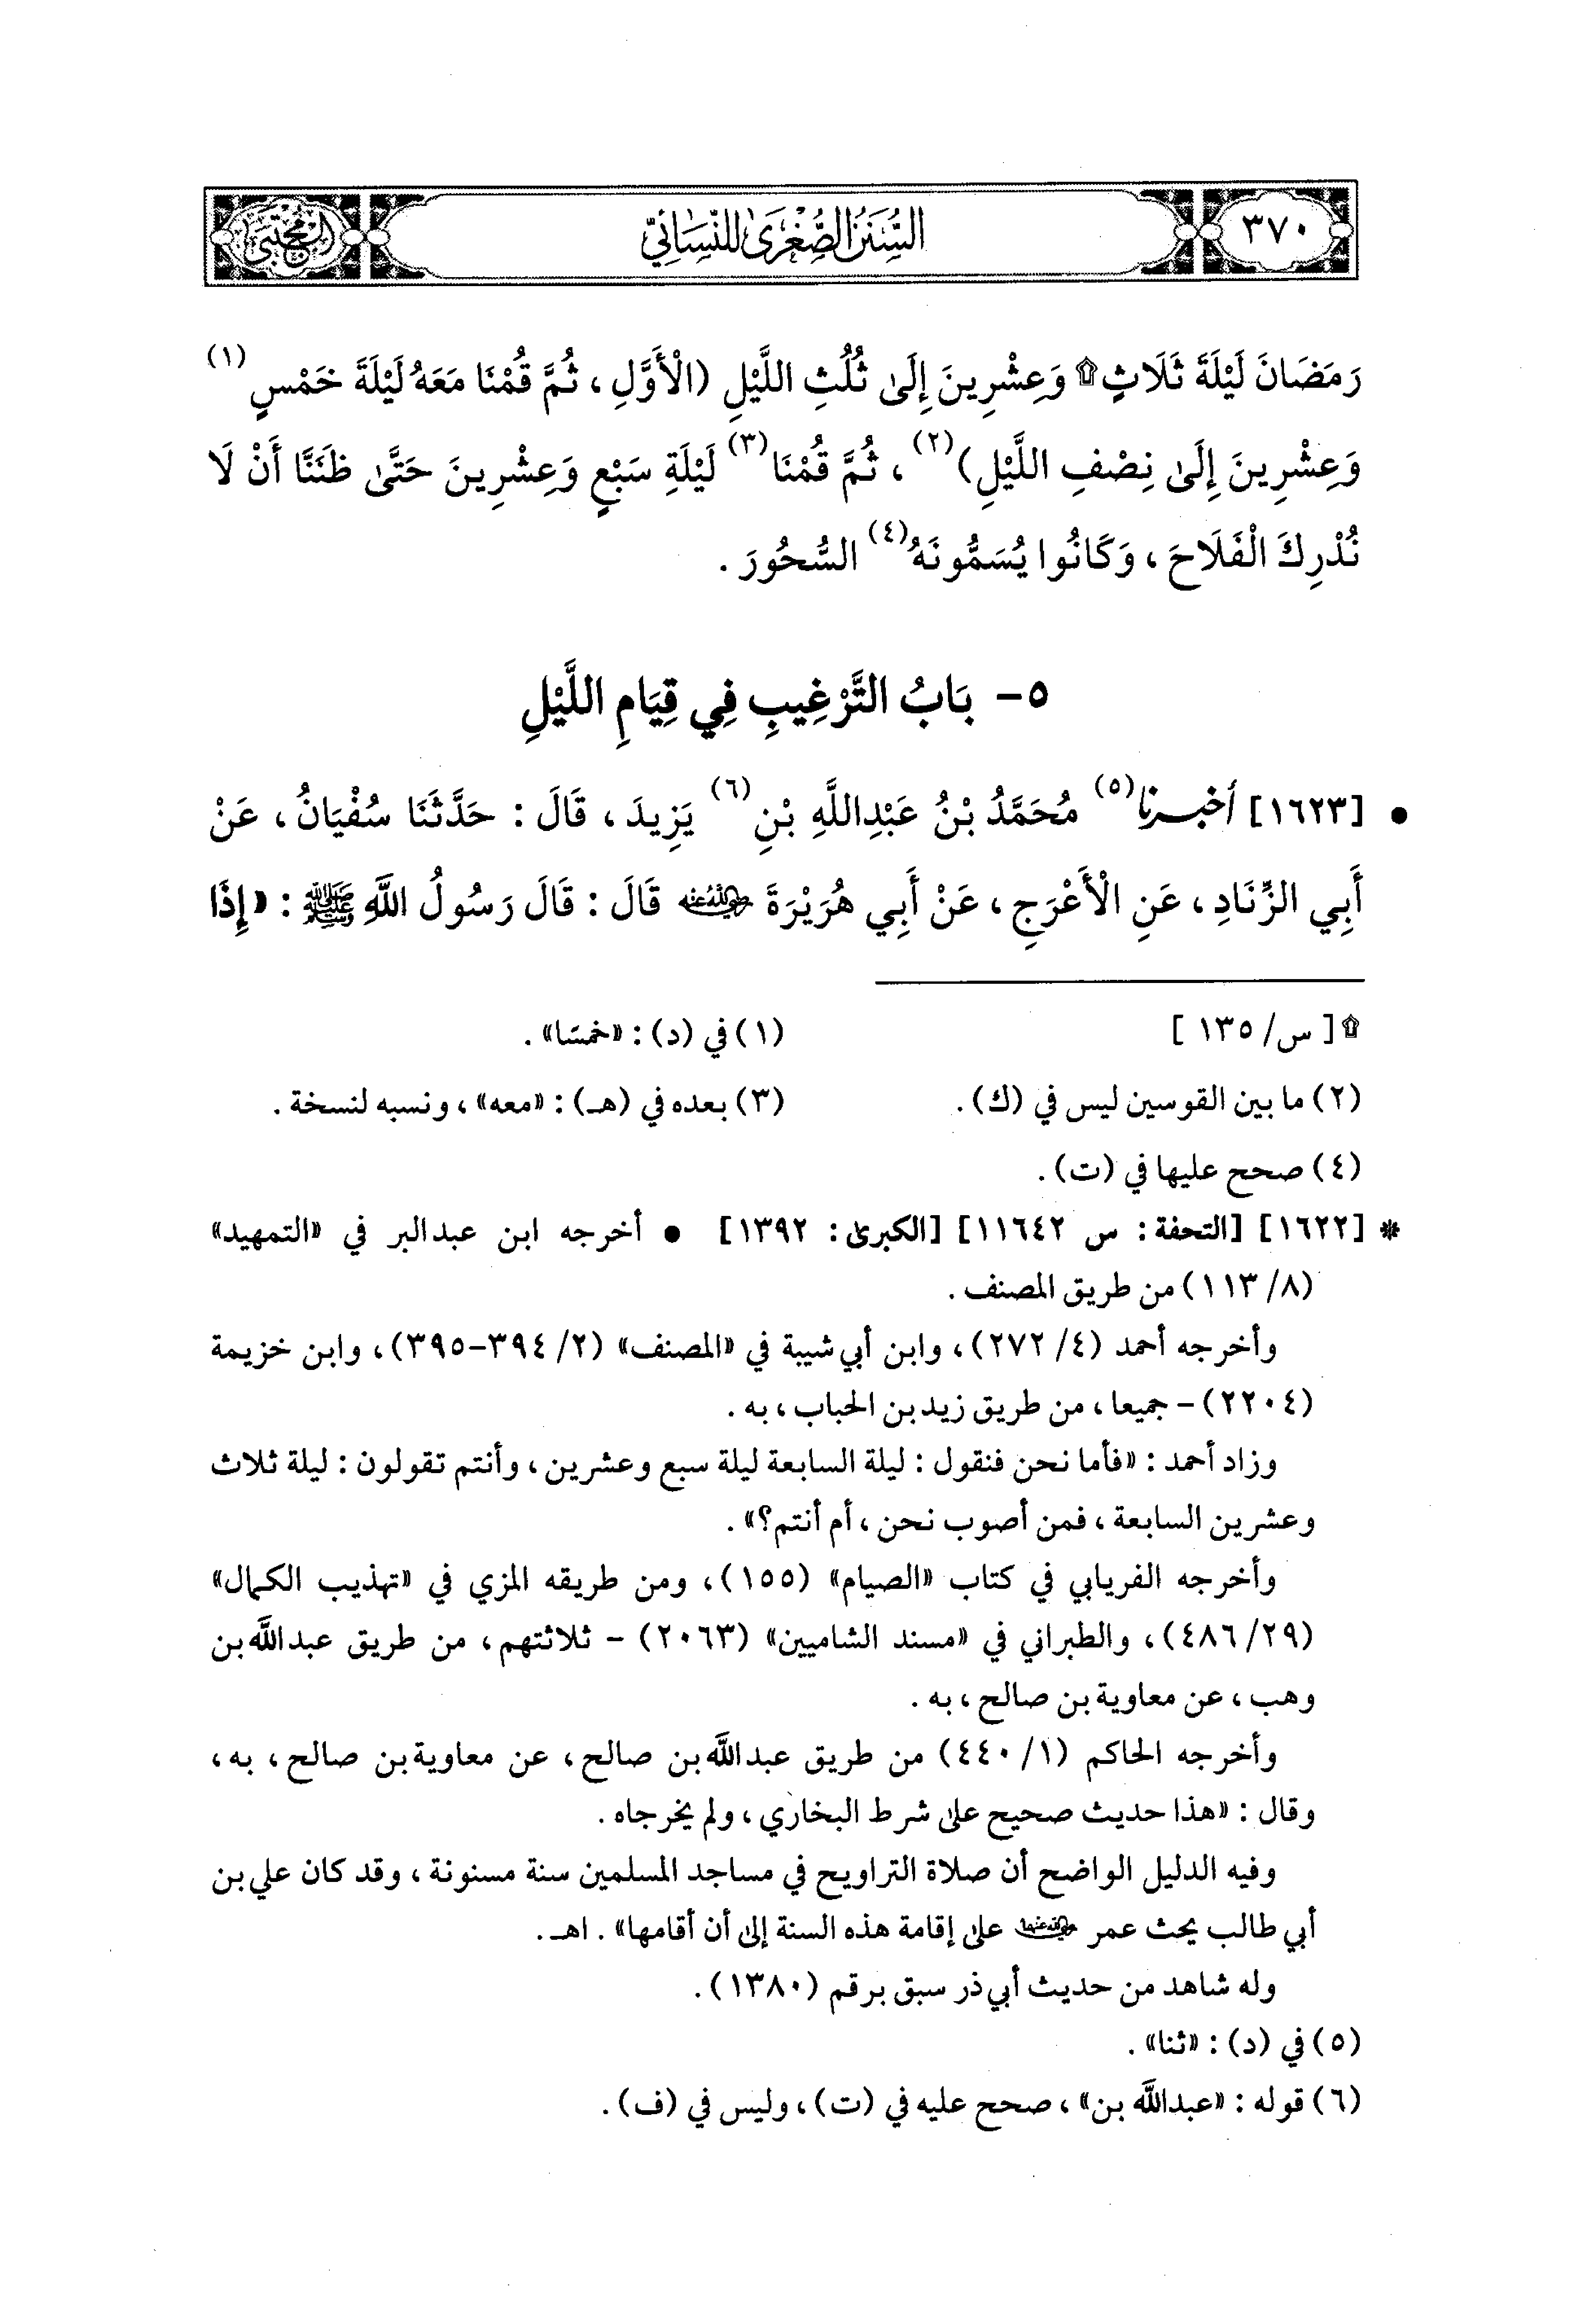 ٣٧٠
السُّنَنُ الصُّغْرَىٰ لِلنَّسَائِيِّ
المجتبى
رَمَضَانَ لَيْلَةَ ثَلَاثٍ۩ وَعِشْرِينَ إِلَىٰ ثُلُثِ اللَّيْلِ (الْأَوَّلِ ، ثُمَّ قُمْنَا مَعَهُ لَيْلَةَ خَمْسٍ (١)
وَعِشْرِينَ إِلَىٰ نِصْفِ اللَّيْلِ) (٢) ، ثُمَّ قُمْنَا (٣) لَيْلَةِ سَبْعٍ وَعِشْرِينَ حَتَّىٰ ظَنَنَّا أَنْ لَا
نُدْرِكَ الْفَلَاحَ ، وَكَانُوا يُسَمُّونَهُ (٤) السُّحُورَ .
٥- بَابُ التَّرْغِيبِ فِي قِيَامِ اللَّيْلِ
● [١٦٢٣] أخبرنا (٥) مُحَمَّدُ بْنُ عَبْدِاللَّهِ بْنِ (٦) يَزِيدَ ، قَالَ : حَدَّثَنَا سُفْيَانُ ، عَنْ
أَبِي الزِّنَادِ ، عَنِ الْأَعْرَجِ ، عَنْ أَبِي هُرَيْرَةَ رضي الله عنه قَالَ : قَالَ رَسُولُ اللَّهِ ﷺ : «إِذَا
۩ [ س/ ١٣٥ ]
(١) في (د) : «خمسًا» .
(٢) ما بين القوسين ليس في (ك) .
(٣) بعده في (هـ) : «معه» ، ونسبه لنسخة .
(٤) صحح عليها في (ت) .
* [١٦٢٢] [التحفة : س ١١٦٤٢] [الكبرى : ١٣٩٢] ● أخرجه ابن عبدالبر في «التمهيد»
(٨/ ١١٣) من طريق المصنف .
وأخرجه أحمد (٤/ ٢٧٢) ، وابن أبي شيبة في «المصنف» (٢/ ٣٩٤-٣٩٥) ، وابن خزيمة
(٢٢٠٤) - جميعا ، من طريق زيد بن الحباب ، به .
وزاد أحمد : «فأما نحن فنقول : ليلة السابعة ليلة سبع وعشرين ، وأنتم تقولون : ليلة ثلاث
وعشرين السابعة ، فمن أصوب نحن ، أم أنتم؟» .
وأخرجه الفريابي في كتاب «الصيام» (١٥٥) ، ومن طريقه المزي في «تهذيب الكمال»
(٢٩/ ٤٨٦) ، والطبراني في «مسند الشاميين» (٢٠٦٣) - ثلاثتهم ، من طريق عبدالله بن
وهب ، عن معاوية بن صالح ، به .
وأخرجه الحاكم (١/ ٤٤٠) من طريق عبدالله بن صالح ، عن معاوية بن صالح ، به ،
وقال : «هذا حديث صحيح على شرط البخاري ، ولم يخرجاه .
وفيه الدليل الواضح أن صلاة التراويح في مساجد المسلمين سنة مسنونة ، وقد كان علي بن
أبي طالب يحث عمر رضي الله عنهما على إقامة هذه السنة إلى أن أقامها» . اهـ .
وله شاهد من حديث أبي ذر سبق برقم (١٣٨٠) .
(٥) في (د) : «ثنا» .
(٦) قوله : «عبدالله بن» ، صحح عليه في (ت) ، وليس في (ف) .